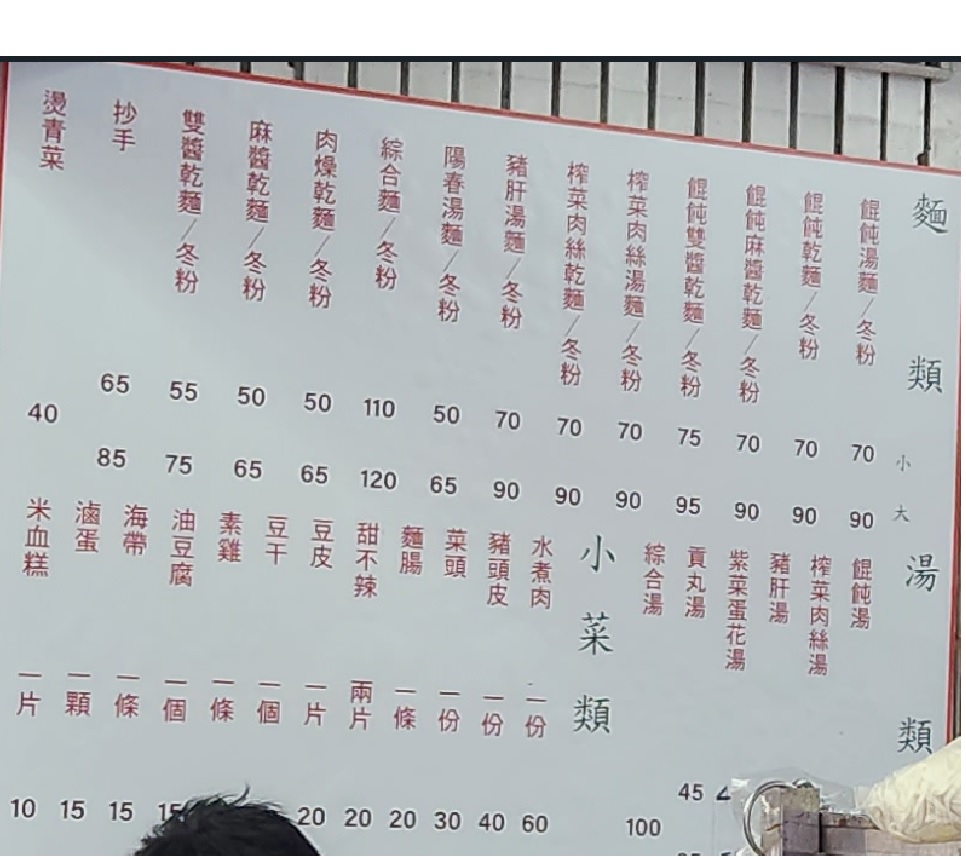 麵類 小 大
餛飩湯麵/冬粉 70 90
餛飩乾麵/冬粉 70 90
餛飩麻醬乾麵/冬粉 70 90
餛飩雙醬乾麵/冬粉 75 95
榨菜肉絲湯麵/冬粉 70 90
榨菜肉絲乾麵/冬粉 70 90
豬肝湯麵/冬粉 70 90
陽春湯麵/冬粉 50 65
綜合麵/冬粉 110 120
肉燥乾麵/冬粉 50 65
麻醬乾麵/冬粉 50 65
雙醬乾麵/冬粉 55 75
抄手 65 85
燙青菜 40
湯類
餛飩湯
榨菜肉絲湯
豬肝湯
紫菜蛋花湯
貢丸湯 45
綜合湯 100
小菜類
水煮肉 一份 60
豬頭皮 一份 40
菜頭 一份 30
麵腸 一條 20
甜不辣 兩片 20
豆皮 一片 20
豆干 一個
素雞 一條
油豆腐 一個
海帶 一條 15
滷蛋 一顆 15
米血糕 一片 10